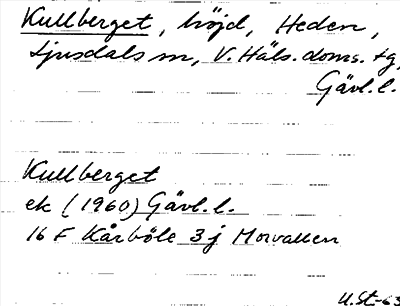 Kullberget, höjd, Heden,
Ljusdals sn, V. Häls. doms. tg,
Gävl. l.
Kullberget
ek (1960) Gävl. l.
16 F Kårböle 3 j Morvallen
U. St-63